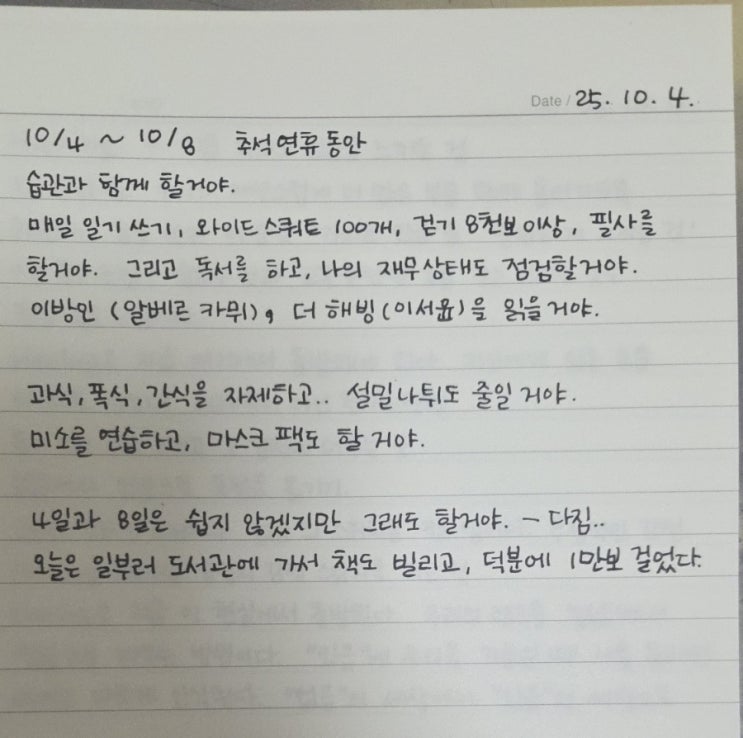 Date / 25. 10. 4.
10/4 ~ 10/8 추석연휴 동안
습관과 함께 할거야.
매일 일기 쓰기, 와이드 스쿼트 100개, 걷기 8천보 이상, 필사를
할거야. 그리고 독서를 하고, 나의 재무상태도 점검할거야.
이방인 (알베르 카뮈), 더 해빙 (이서윤)을 읽을거야.
과식, 폭식, 간식을 자제하고.. 설밀나튀도 줄일거야.
미소를 연습하고, 마스크 팩도 할거야.
4일과 8일은 쉽지 않겠지만 그래도 할거야. - 다짐..
오늘은 일부러 도서관에 가서 책도 빌리고, 덕분에 1만보 걸었다.